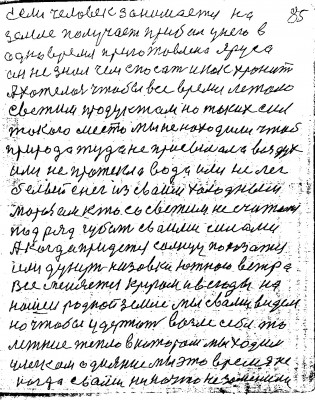 если человек занимается на 85
земле получает прибыл у него в
одно время приготовлена ягуса
он не знал чем спосат и как хронит
я хотел от чтобы все время летом
светим продуктам но таких сил
такого место мы не находим чтоб
природа туда не присылала воздух
или не протекла вода или не лег
белый снег из своим холодный
морозам кто со светим не считает
под ряд губит своими силами
а когда придет солнце показать
или дунут низовки ютного ветра
все меняется кругом и всегды на
нашей родной земле мы с вами видем
но чтобы удержат возле себя это
летние тепло в котором мы ходим
целиком одияние мы это время не
когда с вами ни на что не заменили